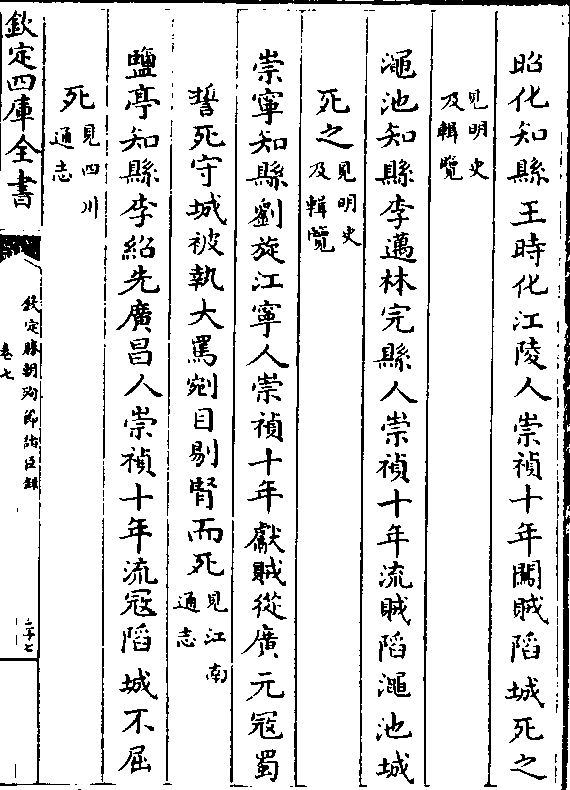 昭化知縣王時化江陵人崇禎十年闖賊陷城死之
見明史
及輯覽
澠池知縣李邁林完縣人崇禎十年流賊陷澠池城
死之見明史
及輯覽
崇寧知縣劉旋江寧人崇禎十年獻賊從廣元冦蜀
誓死守城被執大罵剜目剔腎而死見江南
通志
鹽亭知縣李紹先廣昌人崇禎十年流冦陷城不屈
死見四川
通志
欽定四庫全書
欽定勝朝殉節諸臣録
卷七
二十七